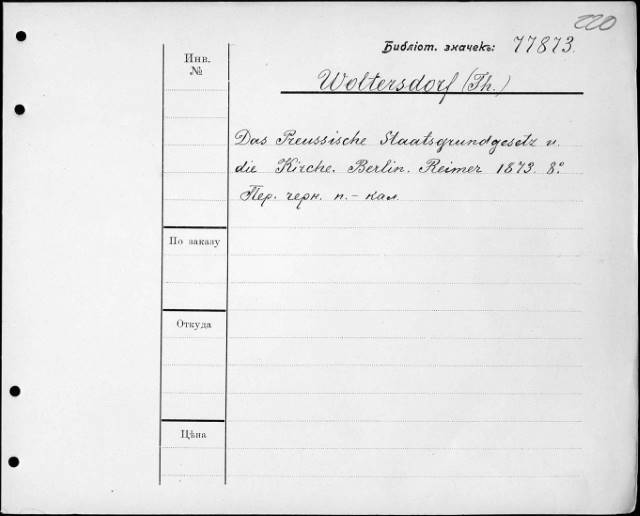 220
Библіот. значекъ: 77873.
Инв.
№
Woltersdorf (Th.)
Das Preussische Staatsgrundgesetz u.
die Kirche. Berlin. Reimer 1873. 8º
Пер. черн. п.-кал.
По заказу
Откуда
Цѣна